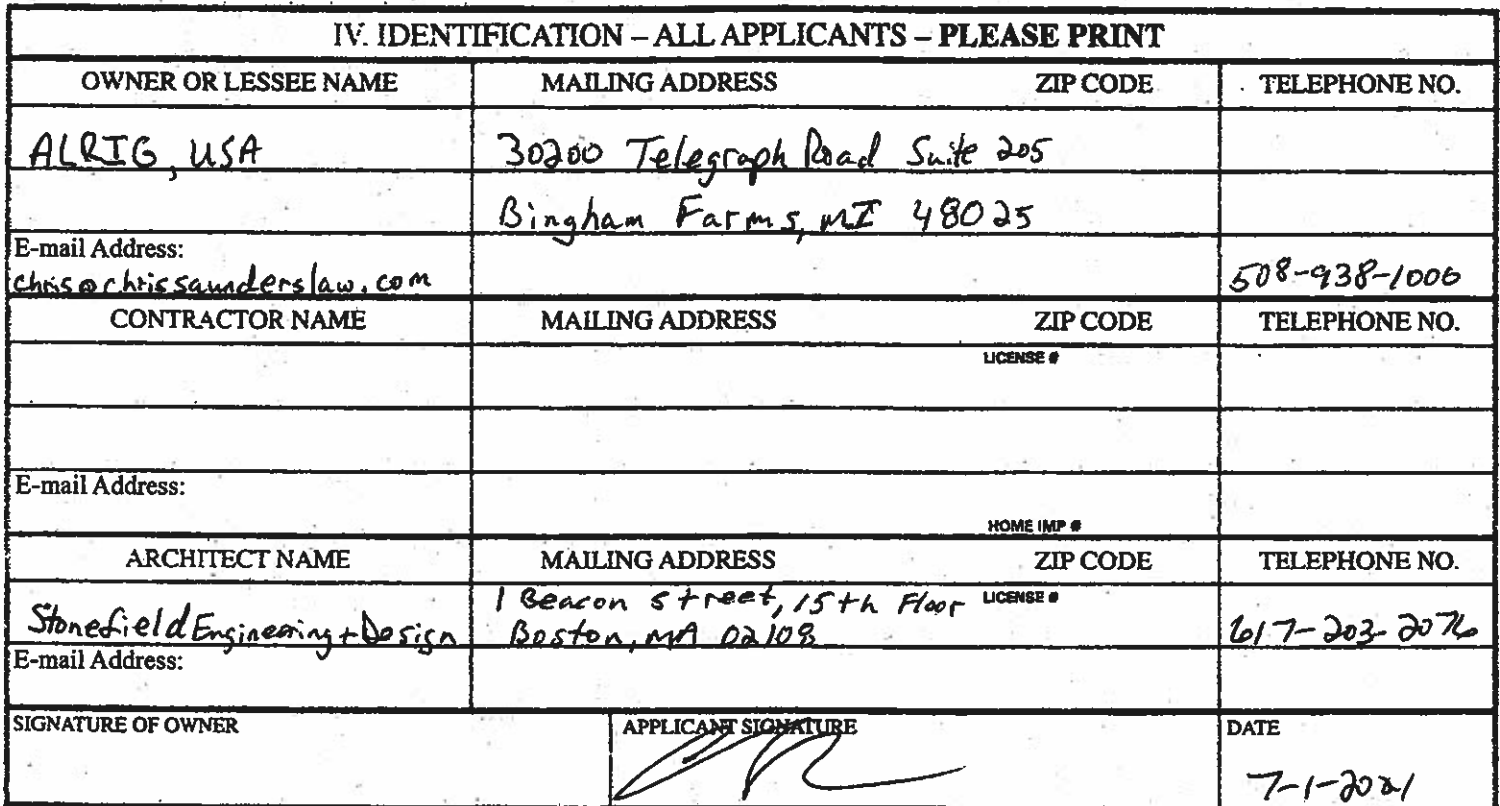 IV. IDENTIFICATION – ALL APPLICANTS – PLEASE PRINT
OWNER OR LESSEE NAME MAILING ADDRESS ZIP CODE TELEPHONE NO.
ALRIG, USA 30200 Telegraph Road Suite 205
Bingham Farms, MI 48025
E-mail Address:
chris@chrissaunderslaw.com 508-938-1006
CONTRACTOR NAME MAILING ADDRESS ZIP CODE TELEPHONE NO.
LICENSE #
E-mail Address:
HOME IMP #
ARCHITECT NAME MAILING ADDRESS ZIP CODE TELEPHONE NO.
1 Beacon street, 15th Floor LICENSE #
Stonefield Engineering + Design Boston, MA 02108 617-203-2076
E-mail Address:
SIGNATURE OF OWNER APPLICANT SIGNATURE DATE
7-1-2021